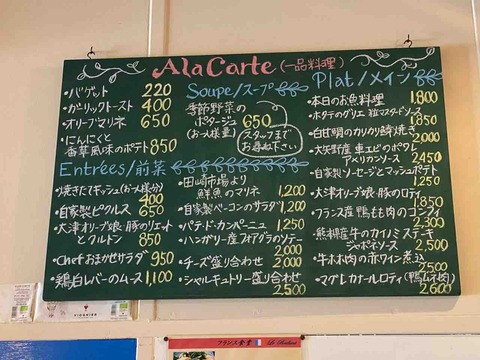 AlaCarte (一品料理)
・バゲット 220
・ガーリックトースト 400
・オリーブマリネ 650
・にんにくと
香草風味のポテト 850
Soupe/スープ
季節野菜の
ポタージュ 650
(お一人様量)
スタッフまで
お尋ね下さい
Entrées/前菜
・焼きたてキッシュ(お一人様分)
400
・自家製ピクルス 650
・大津オリーブ娘・豚のリエット
とクルトン 850
・Chefおまかせサラダ 950
・鶏白レバーのムース 1,100
・田崎市場より
鮮魚のマリネ 1,200
・自家製ベーコンのサラダ 1,200
・パテ・ド・カンパーニュ 1,250
・ハンガリー産フォアグラのソテー
2,000
・チーズ盛り合わせ 2,000
・シャルキュトリー盛り合わせ
2500
Plat/メイン
・本日のお魚料理 1,800
・ホタテのグリエ 粒マスタードソース
1,850
・白甘鯛のカリカリ鱗焼き
2,000
・大矢野産 車エビのポワレ
アメリカンソース 2,450
・自家製ソーセージとマッシュポテト
1,250
・大津オリーブ娘・豚のロティ
1,850
・フランス産鴨もも肉のコンフィ
2,300
・熊本産牛のカイノミステーキ
ジャポネソース 2,500
・牛ホホ肉の赤ワイン煮込
2,500
・マグレカナールロティ(鴨ムネ肉)
2,600
フランス食堂